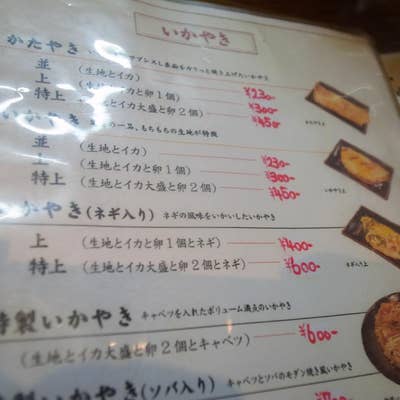 いかやき
かたやき
並 (生地とイカ) ¥230-
上 (生地とイカと卵1個) ¥300-
特上 (生地とイカ大盛と卵2個) ¥450-
いかやき の一品、もちもちの生地が特徴
並 (生地とイカ) ¥230-
上 (生地とイカと卵1個) ¥300-
特上 (生地とイカ大盛と卵2個) ¥450-
いかやき上
かやき(ネギ入り) ネギの風味をいかしたいかやき
上 (生地とイカと卵1個とネギ) ¥400-
特上 (生地とイカ大盛と卵2個とネギ) ¥600-
ネギ入り上
特製いかやき キャベツを入れたボリューム満点のいかやき
(生地とイカ大盛と卵2個とキャベツ) ¥600-
製いかやき(ソバ入り) キャベツとソバのモダン焼き風いかやき